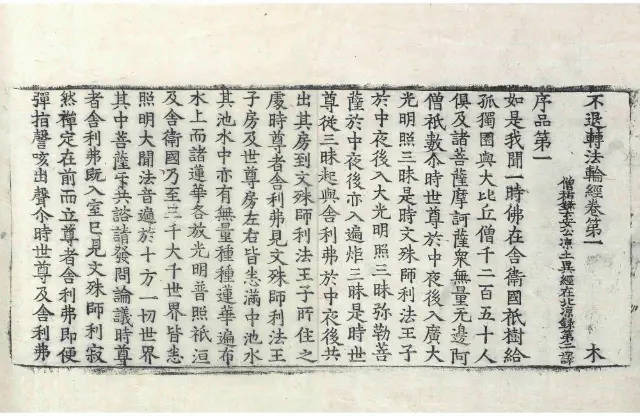 不退轉法輪經卷第一 木
僧祐錄云安公涼土異經在北涼錄第二譯
序品第一
如是我聞一時佛在舍衛國祇樹給
孤獨園與大比丘僧千二百五十人
俱及諸菩薩摩訶薩衆無量無邊阿
僧祇數尒時世尊於中夜後入廣大
光明照三昧是時文殊師利法王子
於中夜後入大光明照三昧弥勒菩
薩於中夜後亦入遍炤三昧是時世
尊從三昧起與舍利弗於中夜後共
出其房到文殊師利法王子所住之
處時尊者舍利弗見文殊師利法王
子房及世尊房左右皆悉滿中池水
其池水中亦有無量種種蓮華遍布
水上而諸蓮華各放光明普照祇洹
及舍衛國乃至三千大千世界皆悉
照明大聞法音遍於十方一切世界
其中菩薩㸦共諮請發問論議時尊
者舍利弗既入室已見文殊師利寂
然禪定在前而立尊者舍利弗即便
彈指謦咳出聲尒時世尊及舍利弗